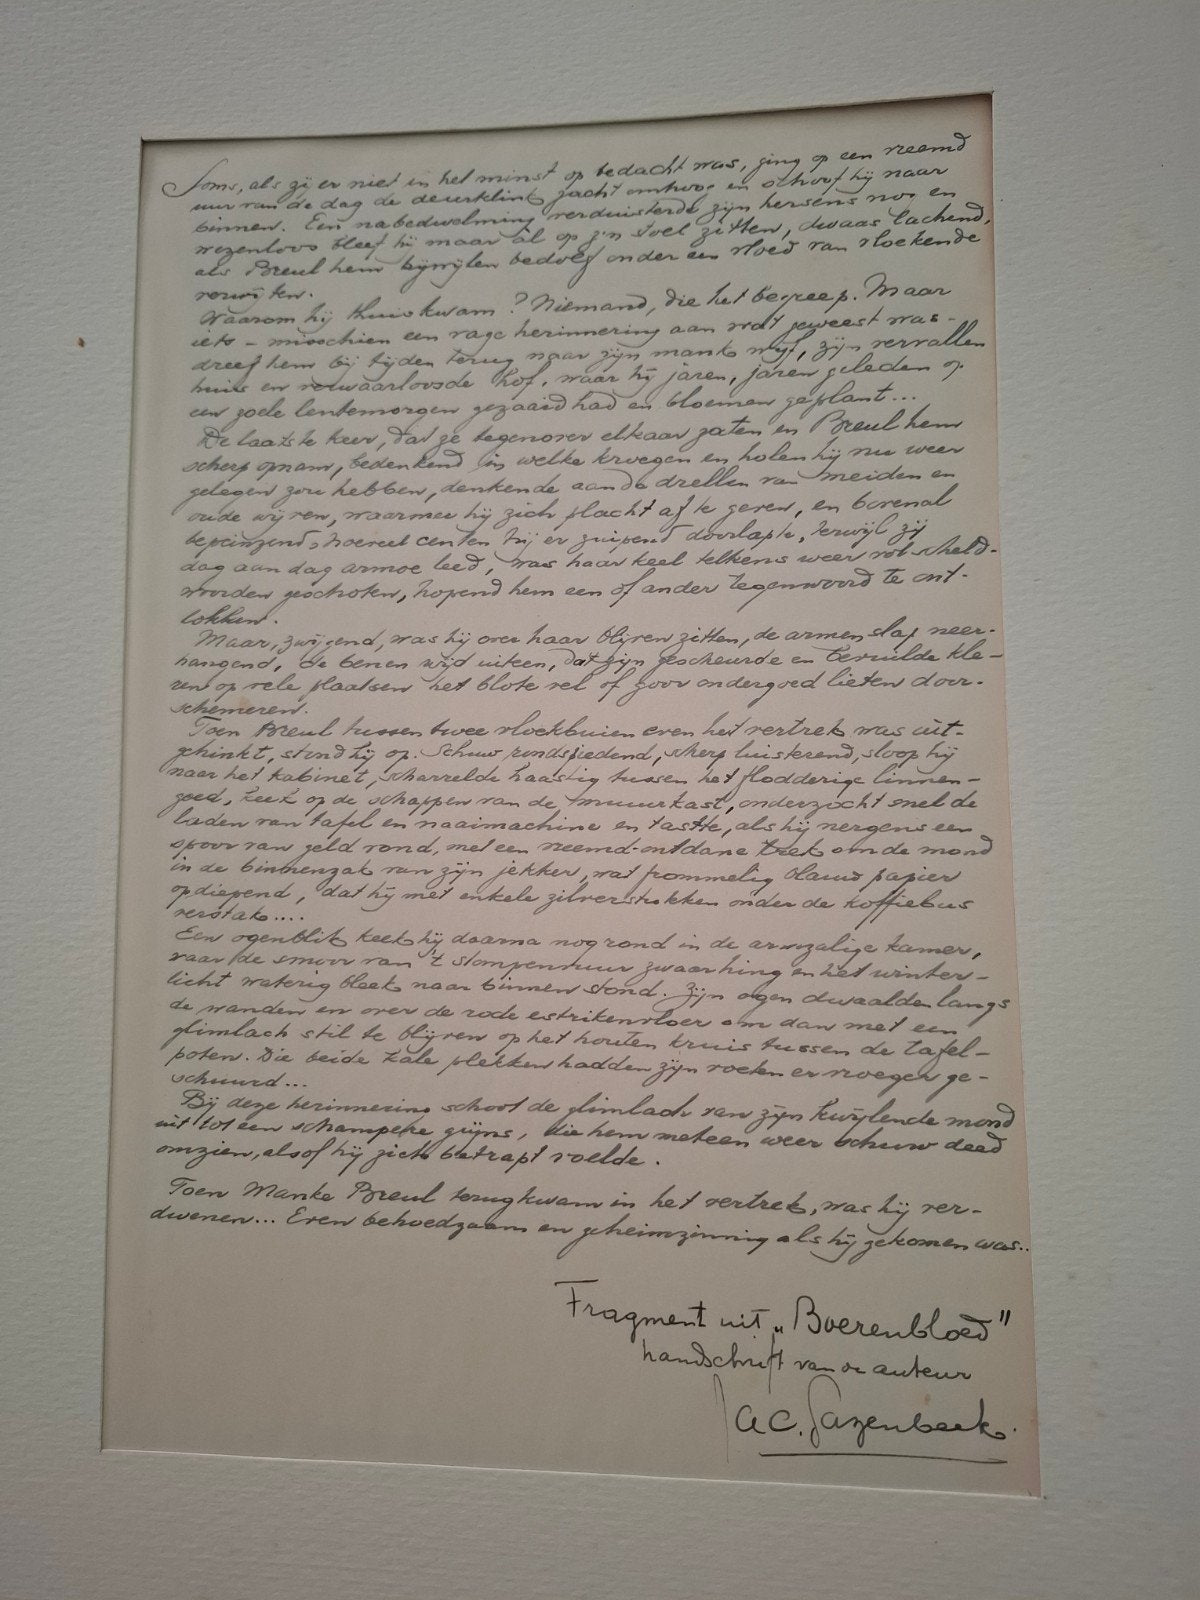 Soms, als zij er niet in het minst op bedacht was, ging op een vreemd
uur van de dag de deurklink zacht omhoog en schoof hij naar
binnen. Een nabedwelming verduisterde zijn hersens nog en
wezenloos bleef hij maar al op z'n stoel zitten, dwaas lachend,
als Breul hem bijwijlen bedolf onder een vloed van vloekende
verwijten.
Waarom hij thuiskwam? Niemand, die het begreep. Maar
iets - misschien een vage herinnering aan wat geweest was -
dreef hem bij tijden terug naar zijn mank wijf, zijn vervallen
huis en verwaarloosde hof, waar hij jaren, jaren geleden op
een zoele lentemorgen gezaaid had en bloemen geplant...
De laatste keer, dat ze tegenover elkaar zaten en Breul hem
scherp opnam, bedenkend in welke kroegen en holen hij nu weer
gelegen zou hebben, denkende aan de drellen van meiden en
oude wijven, waarmee hij zich placht af te geven, en bovenal
bepeinzend, hoeveel centen hij er zuipend doorlapte, terwijl zij
dag aan dag armoe leed, was haar keel telkens weer vol scheld-
woorden geschoten, hopend hem een of ander tegenwoord te ont-
lokken.
Maar, zwijgend, was hij over haar blijven zitten, de armen slap neer-
hangend, de benen wijd uiteen, dat zijn gescheurde en vervuilde kle-
ren op vele plaatsen het blote vel of goor ondergoed lieten door-
schemeren.
Toen Breul tussen twee vloekbuien even het vertrek was uit-
gehinkt, stond hij op. Schuw rondspiedend, scherp luisterend, sloop hij
naar het kabinet, scharrelde haastig tussen het flodderige linnen-
goed, keek op de schappen van de muurkast, onderzocht snel de
laden van tafel en naaimachine en tastte, als hij nergens een
spoor van geld vond, met een vreemd-ontdane trek om de mond
in de binnenzak van zijn jekker, wat frommelig blauw papier
opdiepend, dat hij met enkele zilverstukken onder de koffiebus
verstak....
Een ogenblik keek hij daarna nog rond in de armzalige kamer,
waar de smoor van 't stompenvuur zwaar hing en het winter-
licht waterig bleek naar binnen stond. Zijn ogen dwaalden langs
de wanden en over de rode estrikenvloer om dan met een
glimlach stil te blijven op het houten kruis tussen de tafel-
poten. Die beide kale plekken hadden zijn voeten er vroeger ge-
schuurd...
Bij deze herinnering schoot de glimlach van zijn kwijlende mond
uit tot een schampere grijns, die hem meteen weer schuw deed
omzien, alsof hij zich betrapt voelde.
Toen Manke Breul terugkwam in het vertrek, was hij ver-
dwenen... Even behoedzaam en geheimzinnig als hij gekomen was..
Fragment uit „Boerenbloed"
handschrift van de auteur
Jac. Gazenbeek.